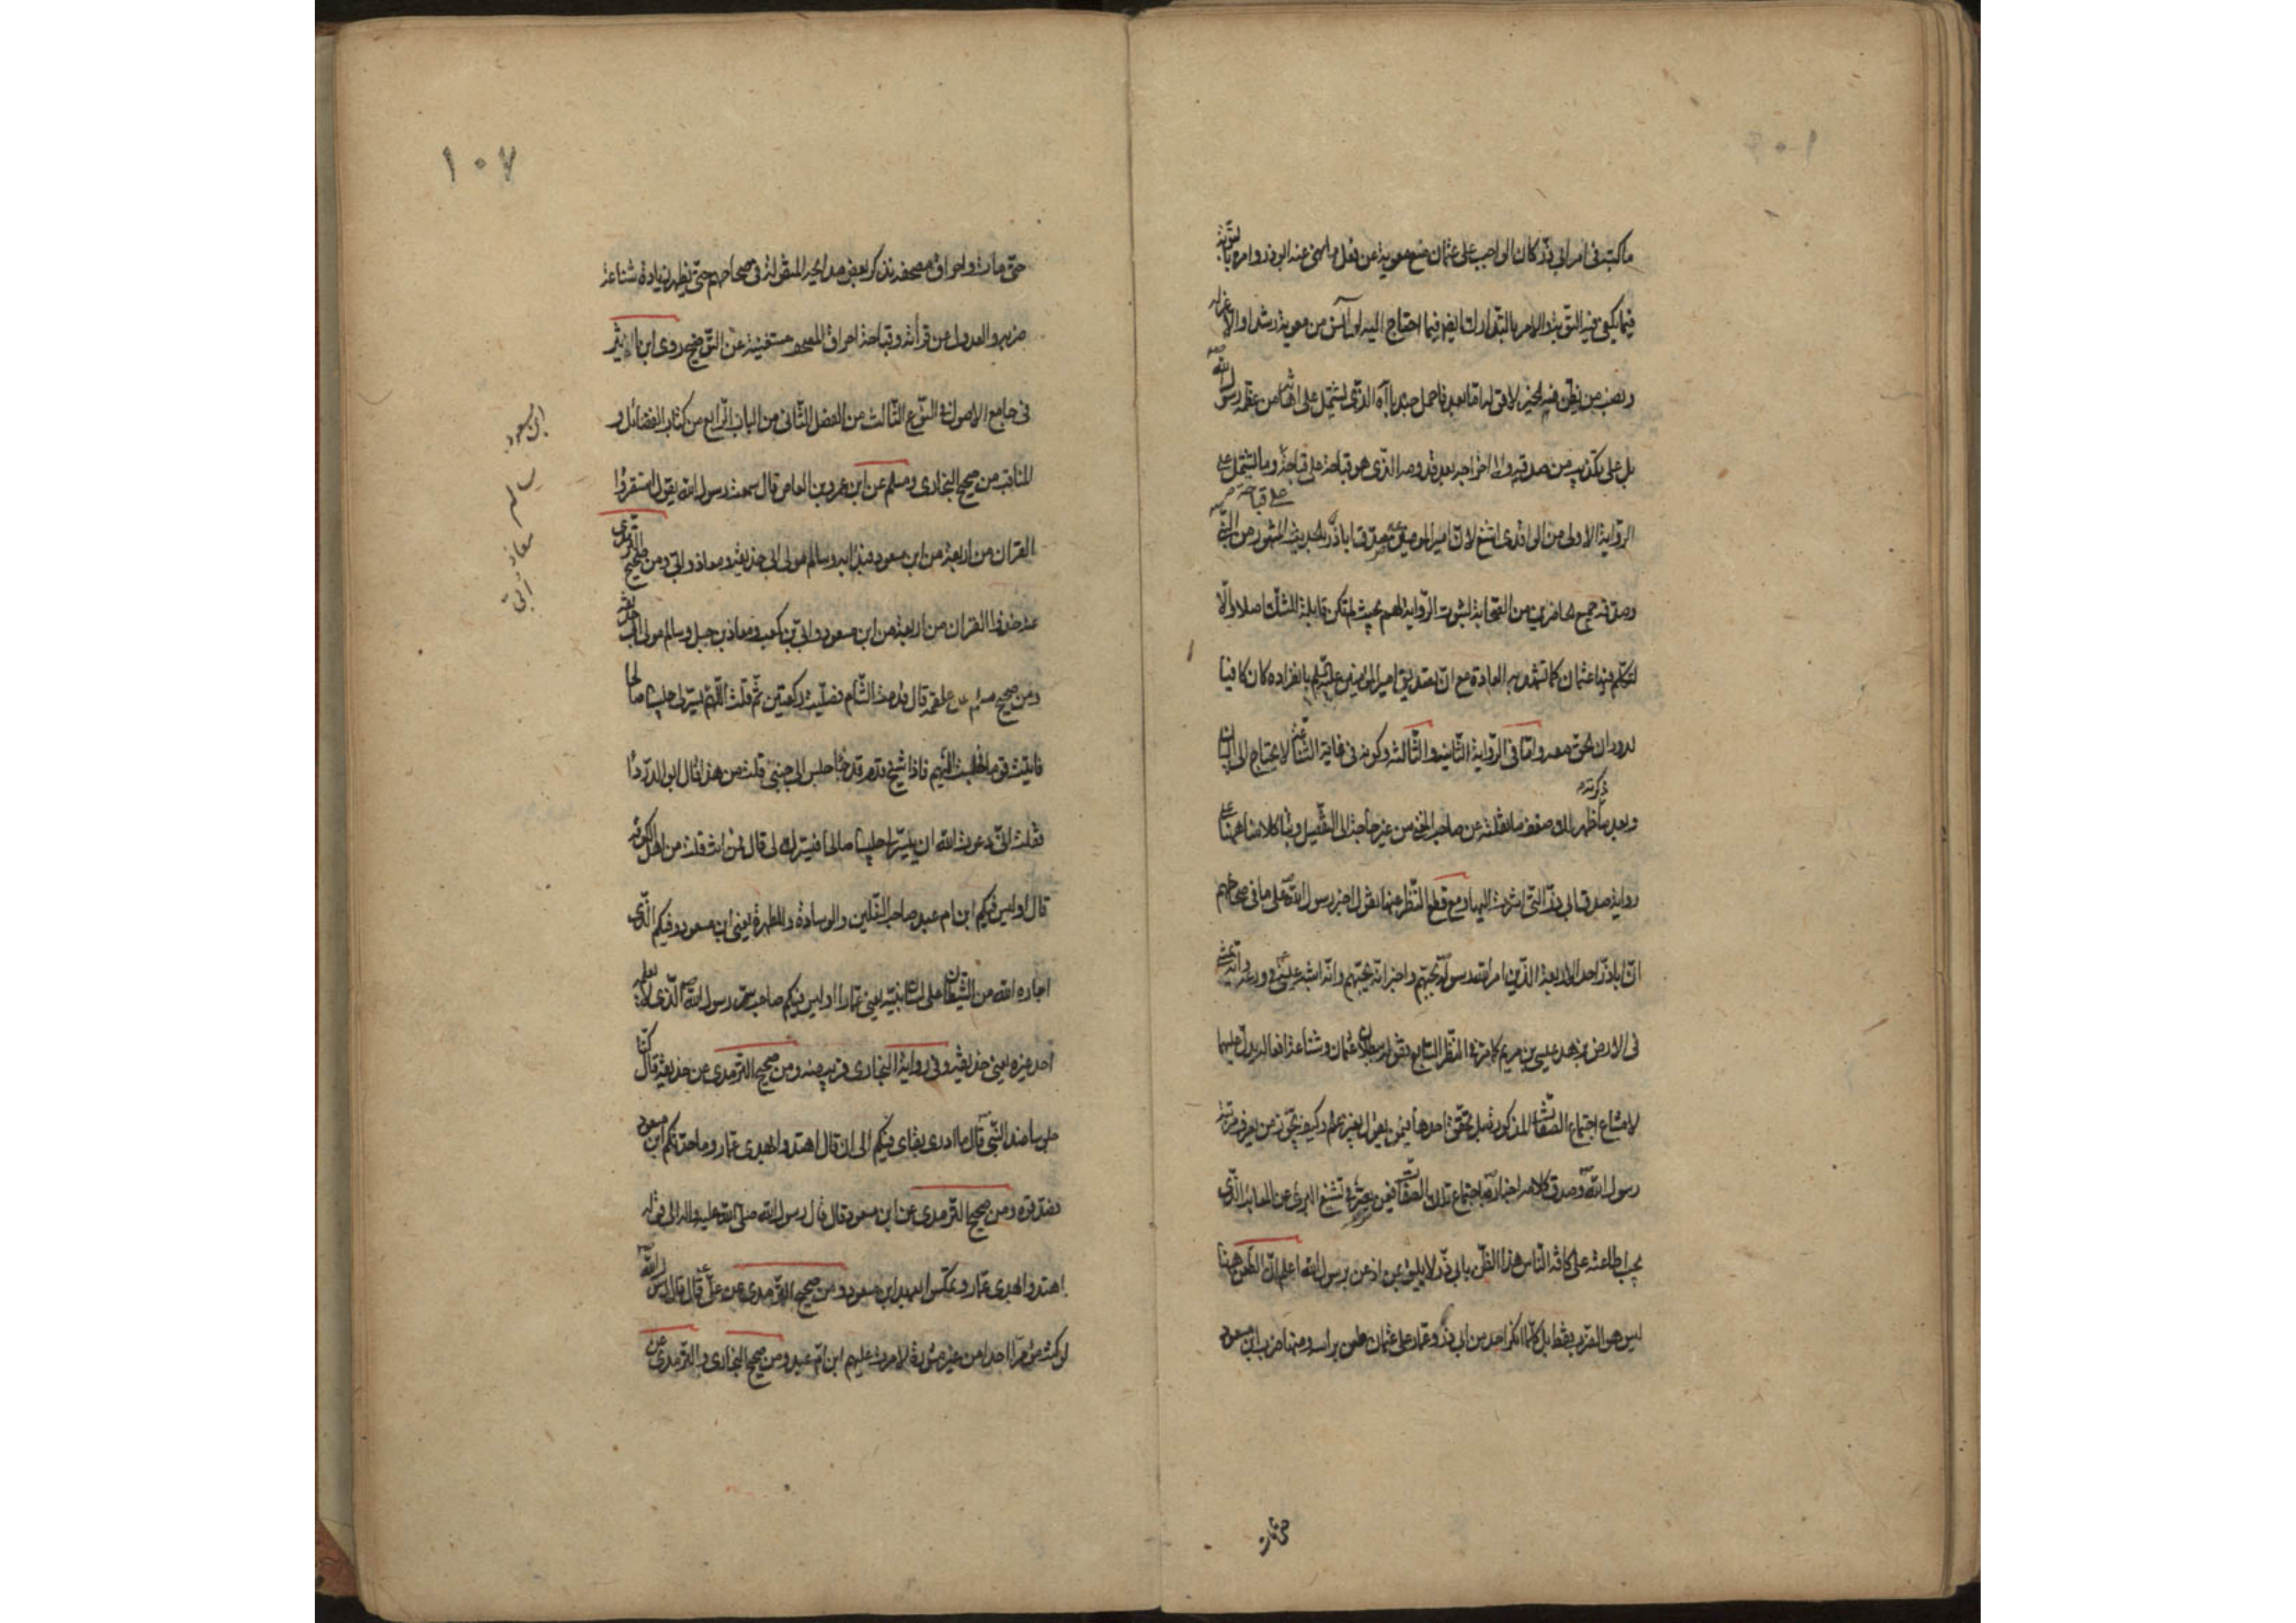 ما كتبه فى امر ابى ذر كان الواجب على عثمان منع معوية عن فعل ما نهى عنه ابو ذر وامره بالتوبة
فيما يكفى فيه التوبة والامر بالتدارك ايضا فيما احتاج اليه او آنس من معوية رشدا والا عزله
ونصب من يظن فيه الخير لا
بل على تكذيب من صدقه واخراجه بعد قدومه الذى هو قباحة على قباحة وما اشتمل عليه
الرواية الاولى من الواقدى اشنع لان امير المؤمنين صدق اباذر بالحديث المشهور من النبى
وصدقه جميع الحاضرين من الصحابة لثبوت الرواية لهم بحيث لم تكن قابلة للشك اصلا والا
لتكلم فيها عثمان كما تشهد به العادة مع ان تصديق امير المؤمنين عليه السلم بانفراده كان كافيا
لدوران الحق معه واما فى الرواية الثانية والثالثة وكونه فى غاية الشناعة لا يحتاج الى البيان
ذكرته
وبعد ما ظهر لك ضعف ما نقلته عن صاحب المغنى من غير حاجة الى التفصيل وبنا كلامنا ههنا على
رواية صدق ابى ذر التى اشرت اليها ومع قطع النظر عنها نقول اخبر رسول الله على ما فى صحاحهم
ان اباذر احد الاربعة الذين امر الله رسوله بحبهم واخبر انه يحبهم وانه اشبه عيسى فى ورعه وانه يمشى
فى الارض بزهد عيسى بن مريم كما مر فى المنظر السابع فنقول بطلان عثمان وشناعة افعاله يدل عليهما
لامتناع اجتماع الصفات المذكورة قبل تحقق احدها فيمن يقول بغير علم وكيف يجوز من يعرف مرتبة
رسول الله وصدق كلامه اخباره باجتماع تلك الصفات فيمن يجترئ فى تشنيع البرئ عن المعايب الذى
يجب اطاعته على كافة الناس هذا الظن بابى ذر لا يليق بمن اذعن برسول الله اعلم ان الطعن ههنا
ليس هو الضرب فقط بل كلما انكر احد من ابى ذر وعمار على عثمان طعن برأسه ومنها ضرب ابن مسعود
حتى مات
١٠٧
حتى مات واحراق مصحفه نذكر بعض مدايحه المنقولة فى صحاحهم حتى يظهر زيادة شناعة
ضربه والعدول عن قرأته وقباحة احراق المصحف مستغنية عن التوضيح روى ابن الاثير
فى جامع الاصول فى النوع الثالث من الفصل الثانى من الباب الرابع من كتاب الفضائل و
المناقب من صحيح البخارى ومسلم عن ابن عمرو بن العاص قال سمعت رسول الله يقول استقرؤا
القران من اربعة من ابن مسعود فبدا به وسالم مولى ابى حذيفة ومعاذ وابى ومن صحيح الترمذى
عنه خذوا القران من اربعة من ابن مسعود وابى بن كعب ومعاذ بن جبل وسالم مولى ابى حذيفة
ومن صحيح مسلم عن علقمة قال قدمت الشام فصليت ركعتين ثم قلت اللهم يسر لى جليسا صالحا
فاتيت قوما فجلست اليهم فاذا شيخ قدم قد جاء جلس الى جنبى قلت من هذا قال ابو الدرداء
فقلت انى دعوت الله ان ييسر لى جليسا صالحا فيسرك لى قال ممن انت قلت من اهل الكوفة
قال اوليس فيكم ابن ام عبد صاحب النعلين والوسادة والمطهرة يعنى ابن مسعود وفيكم الذى
اجاره الله من الشيطان على لسان نبيه يعنى عمارا اوليس فيكم صاحب سر رسول الله الذى لا يعلمه
احد غيره يعنى حذيفة وفى رواية البخارى قريب منه ومن صحيح الترمذى عن حذيفة قال كنا
جلوسا عند النبى قال ما ادرى بقاى فيكم الى ان قال اهتدوا بهدى عمار وما حدثكم ابن مسعود
فصدقوه ومن صحيح الترمذى عن ابن مسعود قال قال رسول الله صلى الله عليه واله الى قوله
اهتدوا بهدى عمار وتمسكوا بعهد ابن مسعود ومن صحيح الترمذى عن على قال قال رسول الله
لو كنت مؤمرا احدا من غير مشورة لامرت عليهم ابن ام عبد ومن صحيح البخارى والترمذى عن
ابن مسعود
سالم
معاذ
ابى